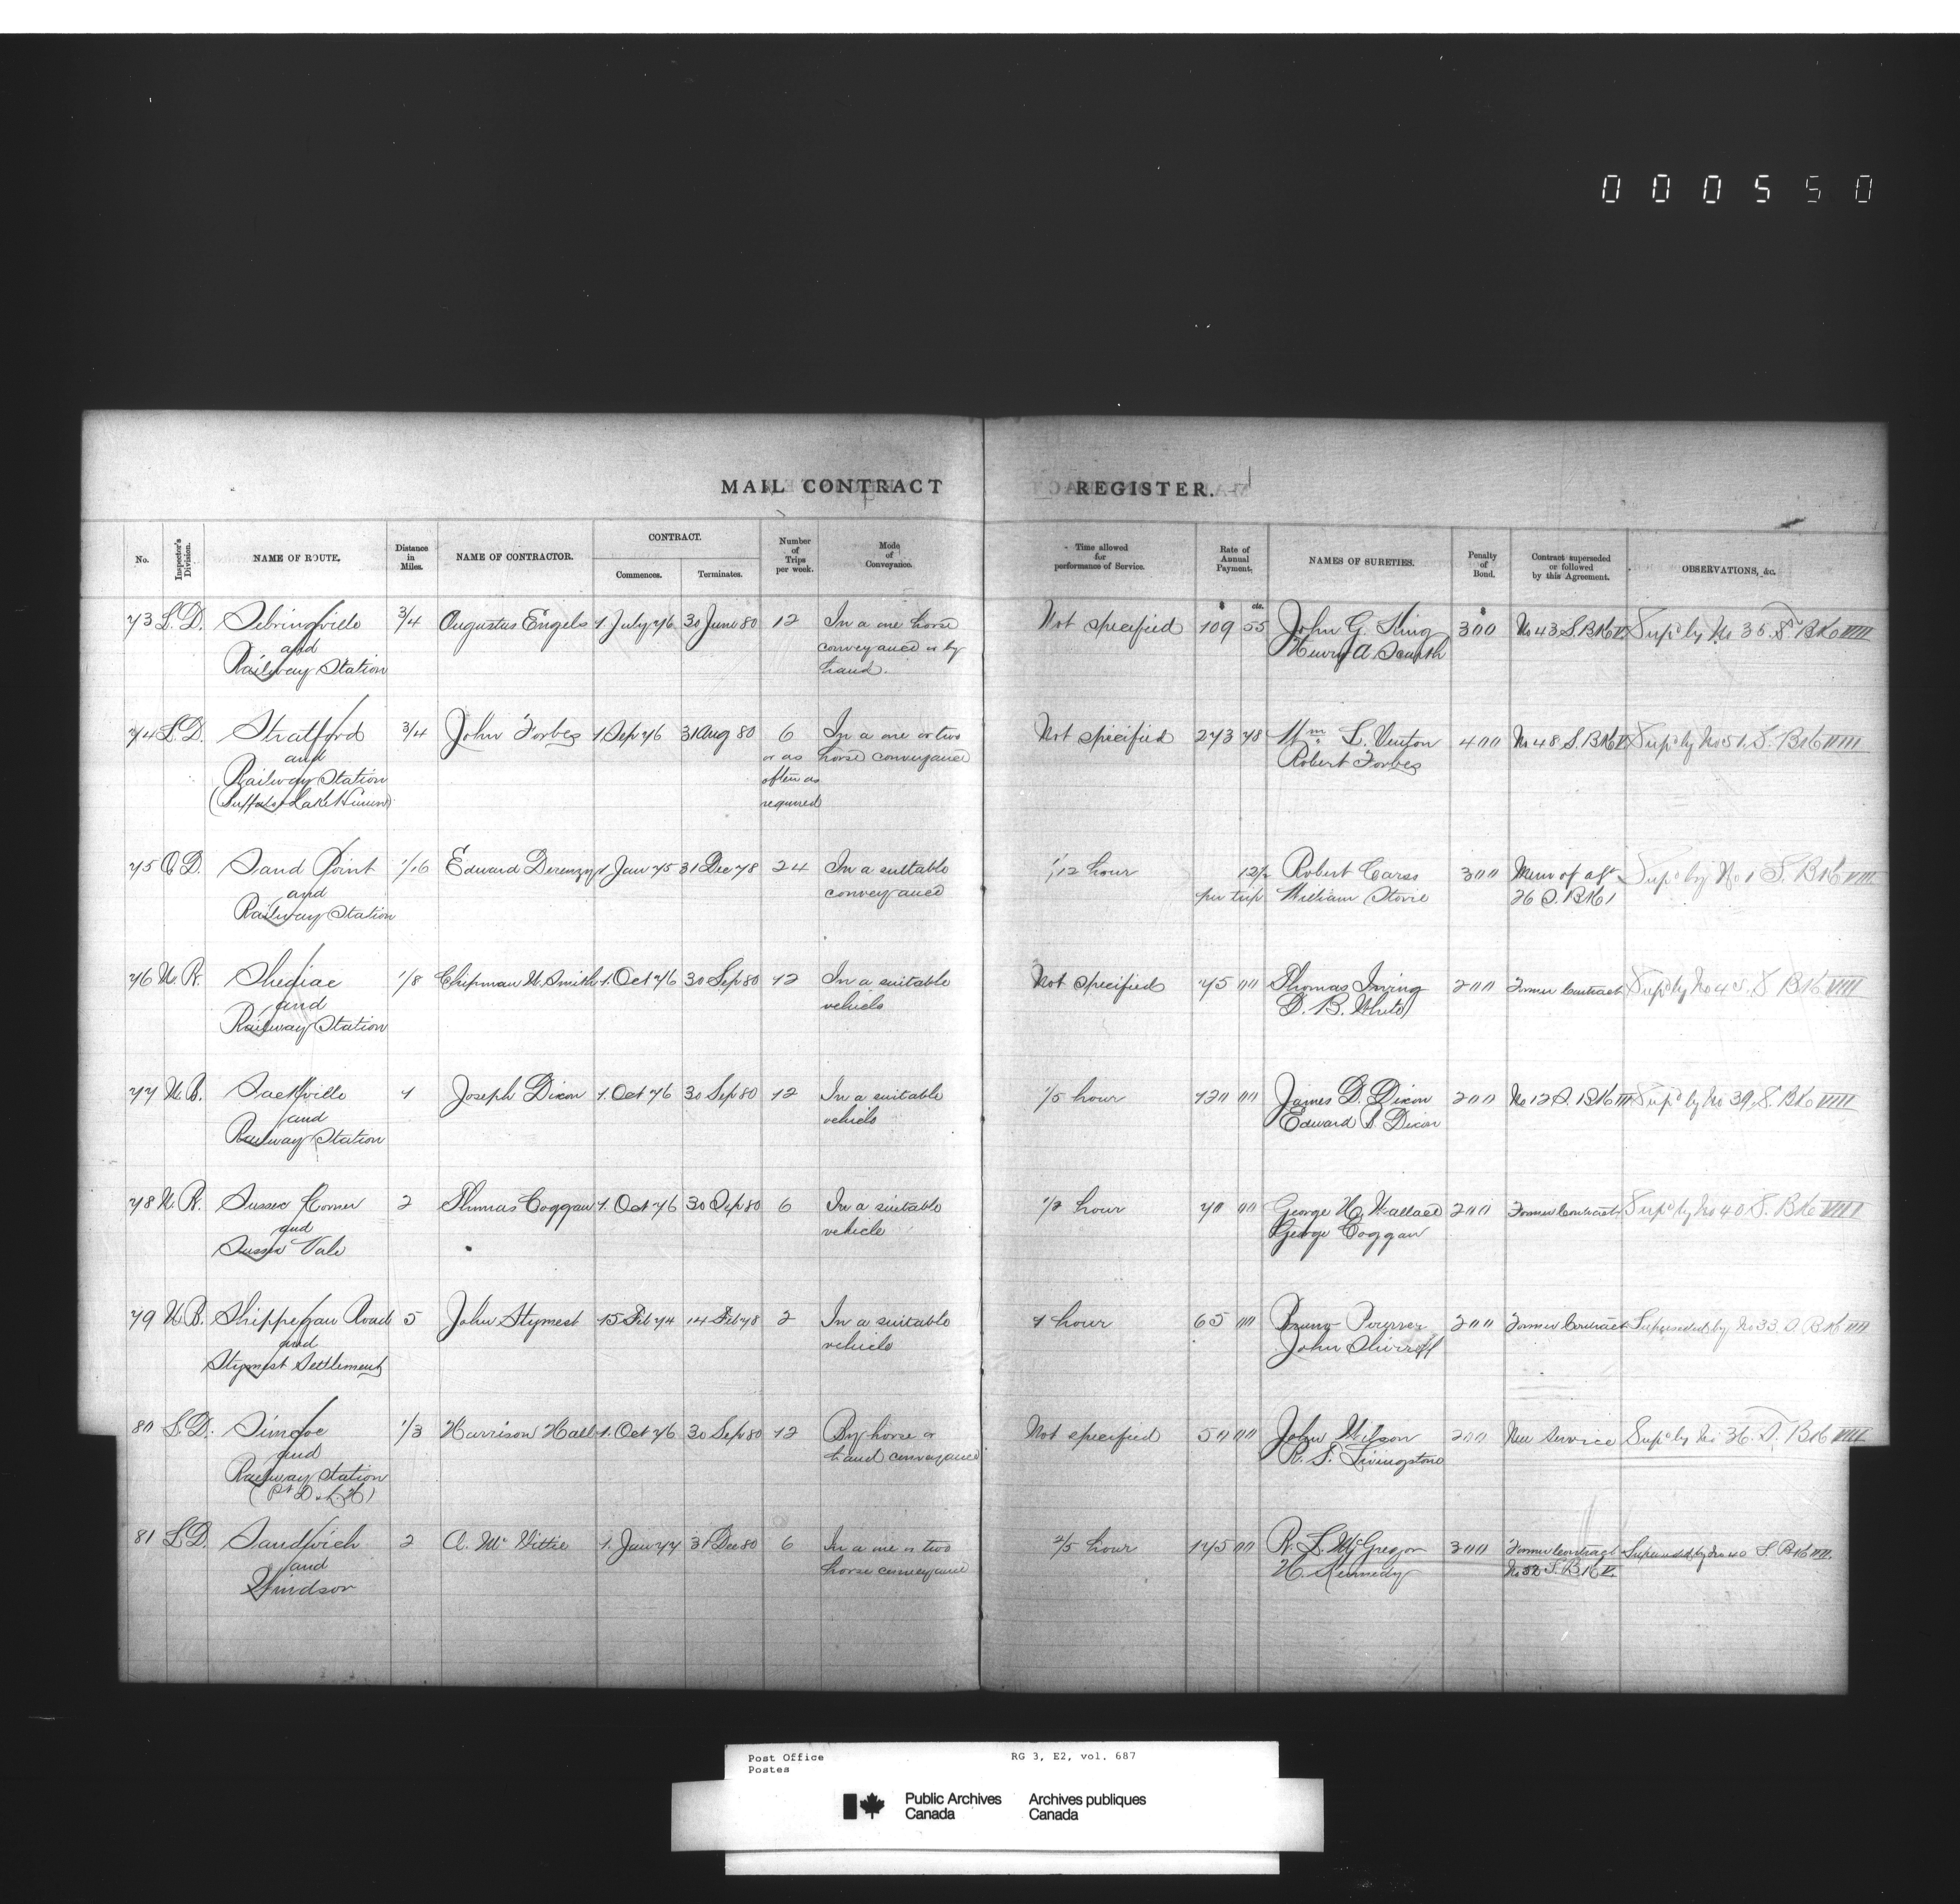 000550
MAIL CONTRACT REGISTER.
No. Inspector's Division. NAME OF ROUTE. Distance in Miles. NAME OF CONTRACTOR. CONTRACT. Commences. Terminates. Number of Trips per week. Mode of Conveyance. Time allowed for performance of Service. Rate of Annual Payment. NAMES OF SURETIES. Penalty of Bond. Contract superseded or followed by this Agreement. OBSERVATIONS, &c.
$ cts. $
73 L. D. Sebringville 3/4 Augustus Engels 1 July 76 30 June 80 12 In a one horse Not specified 109 55 John G. King 300 No 43 S. BK V Sup'd by No 35 S. BK VIII
and conveyance or by Henry A
Railway Station hand.
74 L. D. Stratford 3/4 John Forbes 1 Sep 76 31 Aug 80 6 In a one or two Not specified 273 78 Wm L. Vinton 400 No 48 S. BK V Sup'd by No 51. S. BK VIII
and or as horse conveyance Robert Forbes
Railway Station often as
(Buffalo & Lake Huron) required
75 O D. Sand Point 1/16 Edward Derenzy 1 Jan 75 31 Dec 78 24 In a suitable 1/12 hour 12½ Robert Carss 300 Mem of agt Sup'd by No 1 S. BK VIII
and conveyance per trip William Stovie 26 S. BK 1
Railway Station
76 N. B. Shediac 1/8 Chipman W. Smith 1. Oct 76 30 Sep 80 12 In a suitable Not specified 75 00 Thomas Irving 200 Former Contract Sup'd by No S BK VIII
and vehicle D. B. White
Railway Station
77 N. B. Sackville 1 Joseph Dixon 1. Oct 76 30 Sep 80 12 In a suitable 1/5 hour 120 00 James D. Dixon 200 No 12 S. BK III Sup'd by No 39, S. BK VIII
and vehicle Edward S. Dixon
Railway Station
78 N. B. Sussex Corner 2 Thomas Coggan 1. Oct 76 30 Sep 80 6 In a suitable 1/2 hour 70 00 George H. Wallace 200 Former Contract Sup'd by No 40 S. BK VIII
and vehicle George Coggan
Sussex Vale
79 N. B. Shippegan Road 5 John Stymest 15 Feb 74 14 Feb 78 2 In a suitable 1 hour 65 00 Bruno 200 Former Contract Superseded by No 33 S BK
and vehicle John
Stymest Settlement
80 L. D. Simcoe 1/3 Harrison Hall 1. Oct 76 30 Sep 80 12 By horse or Not specified 50 00 John Wilson 200 New Service Sup'd by No 36. S. BK VIII
and hand conveyance R. S. Livingstone
Railway Station
(Pt D & L. H)
81 L D. Sandwich 2 A. McVittie 1. Jan 77 31 Dec 80 6 In a one or two 2/5 hour 145 00 R. L. McGregor 300 Former Contract Superseded by No 40 S. BK VIII.
and horse conveyance H. Kennedy No 52 S. BK V.
Windsor
Post Office RG 3, E2, vol. 687
Postes
Public Archives Archives publiques
Canada Canada